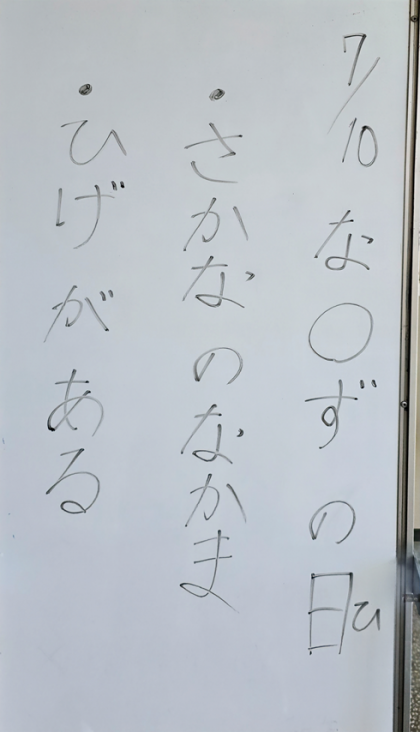 7/10 な〇ずの日ひ
・さかなのなかま
・ひげがある